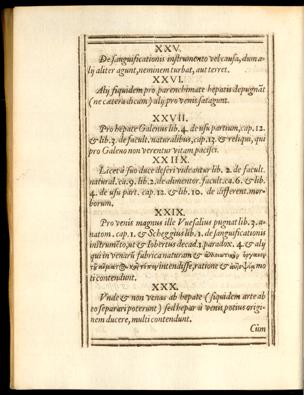 XXV.
De sanguificationis instrumento vel causa, dum a-
lij aliter agunt, neminem turbat, aut terret.
XXVI.
Alij siquidem pro parenchimate hepatis depugnãt
(ne cætera dicam) alij pro venis satagunt.
XXVII.
Pro hepate Galenus lib. 4. de usu partium, cap. 12.
& lib. 3. de facult. naturalibus, cap. 13. & reliqui, qui
pro Galeno non verentur vitam pacisci.
XXIIX.
Licet à suo duce deseri videantur lib. 2. de facult.
natural. ca. 9. lib. 2. de alimentor. facult. ca. 6. & lib.
4. de usu part. cap. 12. & lib. 10. de different. mor-
borum.
XXIX.
Pro venis magnus ille Vuesalius pugnat lib. 3. a-
natom. cap. 1. & Scheggius lib. 1. de sanguificationis
instrumẽto, ut & Iobertus decad. 1. paradox. 4. & alij
qui in venarũ fabrica naturam &
intendisse, ratione & mo
ti contendunt.
XXX.
Vnde & non venas ab hepate (siquidem arte ab
eo separari poterunt) sed hepar à venis potius origi-
nem ducere, multi contendunt.
Cùm